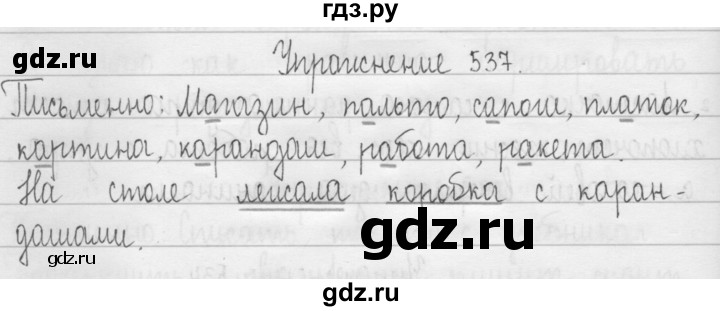 гдз.ру
gdz.ru
Упражнение 537.
Письменно: Магазин, пальто, сапоги, платок,
картина, карандаш, работа, ракета.
На столе лежала коробка с каран-
дашами.
gdz.ru
gdz.ru
gdz.ru